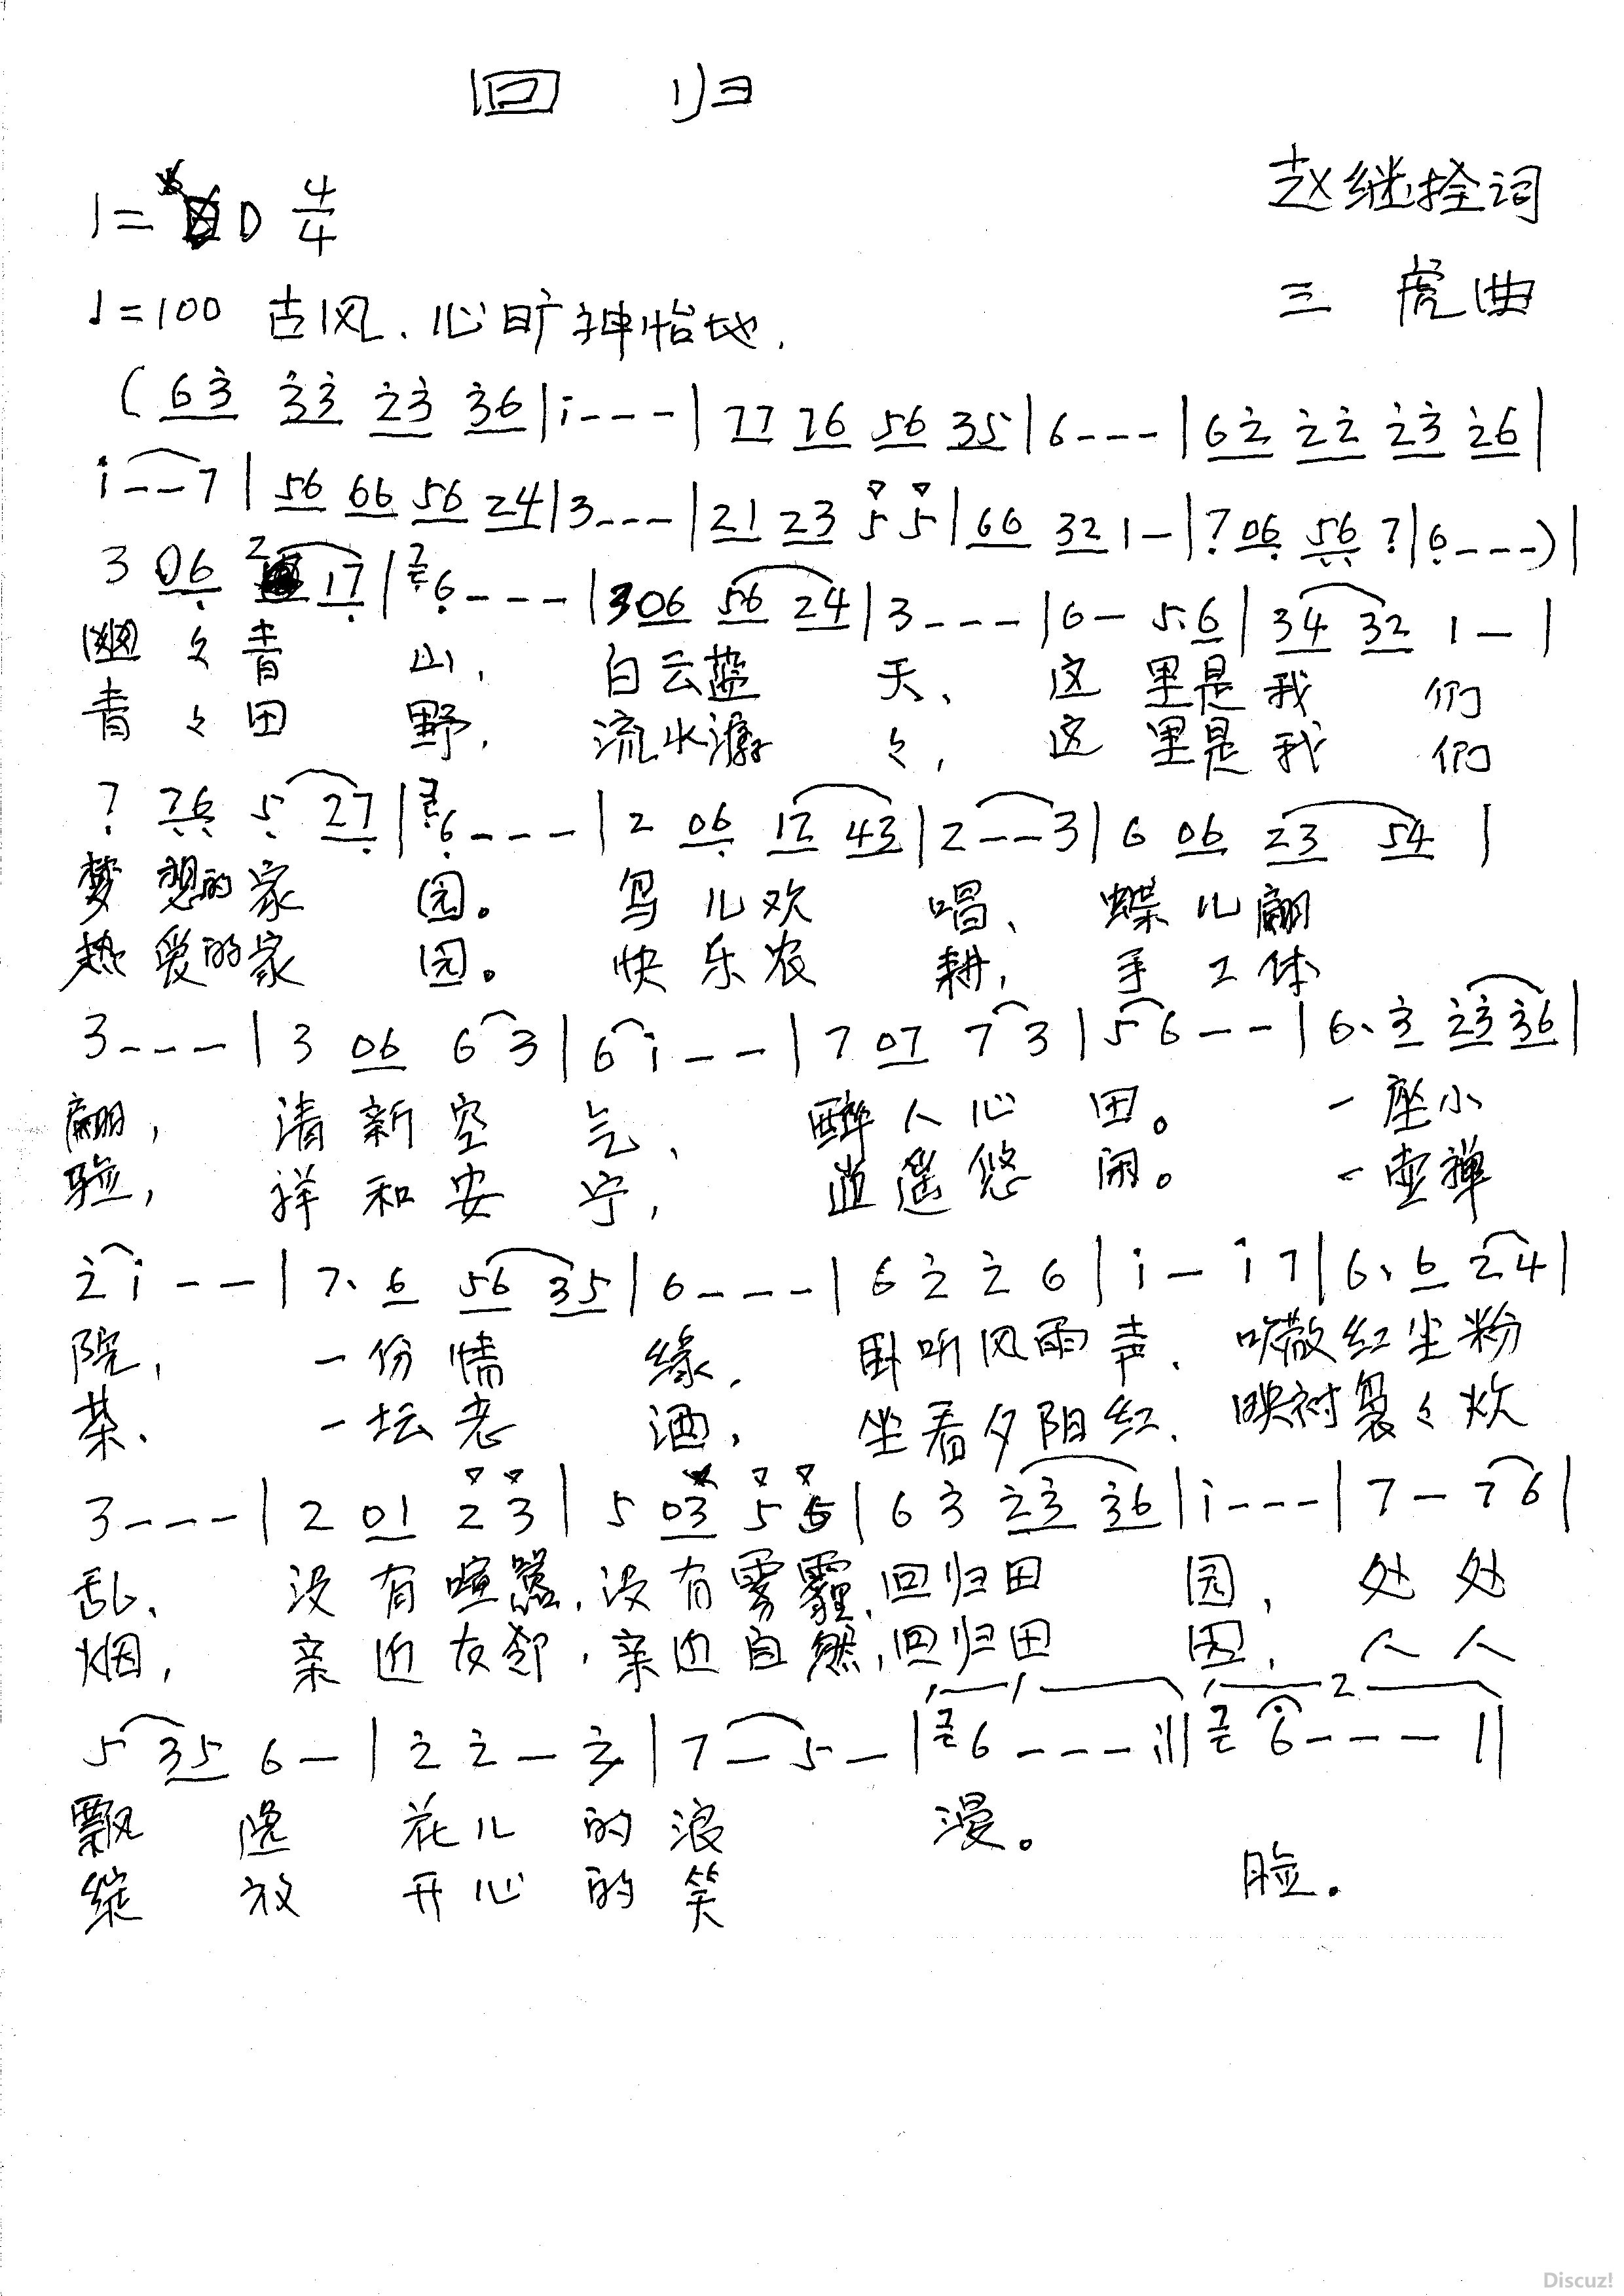 回 归
1= D 4/4
赵继拴词
♩=100 古风、心旷神怡地.
三 虎曲
( 6 3̇ 3̇ 3̇ 2̇ 3̇ 3̇ 6 | i - - - | 7 7 7 6 5 6 3 5 | 6 - - - | 6 2̇ 2̇ 2̇ 2̇ 3̇ 2̇ 6 |
i - - 7 | 5 6 6 6 5 6 2 4 | 3 - - - | 2 1 2 3 5 5 | 6 6 3 2 1 - | 7̣ 0 6̣ 5̣ 6̣ 7̣ | 6̣ - - - ) |
3 0 6̣ 2 1 7̣ | 6̣ - - - | 3 0 6 5 6 2 4 | 3 - - - | 6 - 5. 6 | 3 4 3 2 1 - |
幽 々 青 山, 白云蓝 天、 这 里是我 们
青 々 田 野, 流水潺 々, 这 里是我 们
7̣ 7̣ 6̣ 5̣ 2 7̣ | 6̣ - - - | 2 0 6̣ 1 2 4 3 | 2 - - 3 | 6 0 6 2 3 5 4 |
梦 想的家 园。 鸟儿欢 唱、 蝶儿翩
热 爱的家 园。 快乐农 耕, 手工体
3 - - - | 3 0 6 6 3 | 6 i - - | 7 0 7 7 3 | 5 6 - - | 6. 3̇ 2̇ 3̇ 3̇ 6 |
翩, 清新空 气、 醉人心 田。 一座小
验, 祥和安 宁, 逍遥悠 闲。 一壶禅
2̇ i - - | 7. 6 5 6 3 5 | 6 - - - | 6 2̇ 2̇ 6 | i - i 7 | 6. 6 2 4 |
院, 一份情 缘, 卧听风雨声、 吹散红尘粉
茶、 一坛老 酒, 坐看夕阳红、 映衬袅々炊
3 - - - | 2 0 1 2 3 | 5 0 3 5 5 | 6 3̇ 2̇ 3̇ 3̇ 6 | i - - - | 7 - 7 6 |
乱、 没有喧嚣,没有雾霾,回归田 园, 处处
烟, 亲近友邻,亲近自然,回归田 园, 人人
1 2
5 3 5 6 - | 2̇ 2̇ - 3̇ | 7 - 5 - | 6 - - - :|| 6 - - - ||
飘 逸 花儿 的浪 漫。
绽 放 开心 的笑 脸.
Discuz!